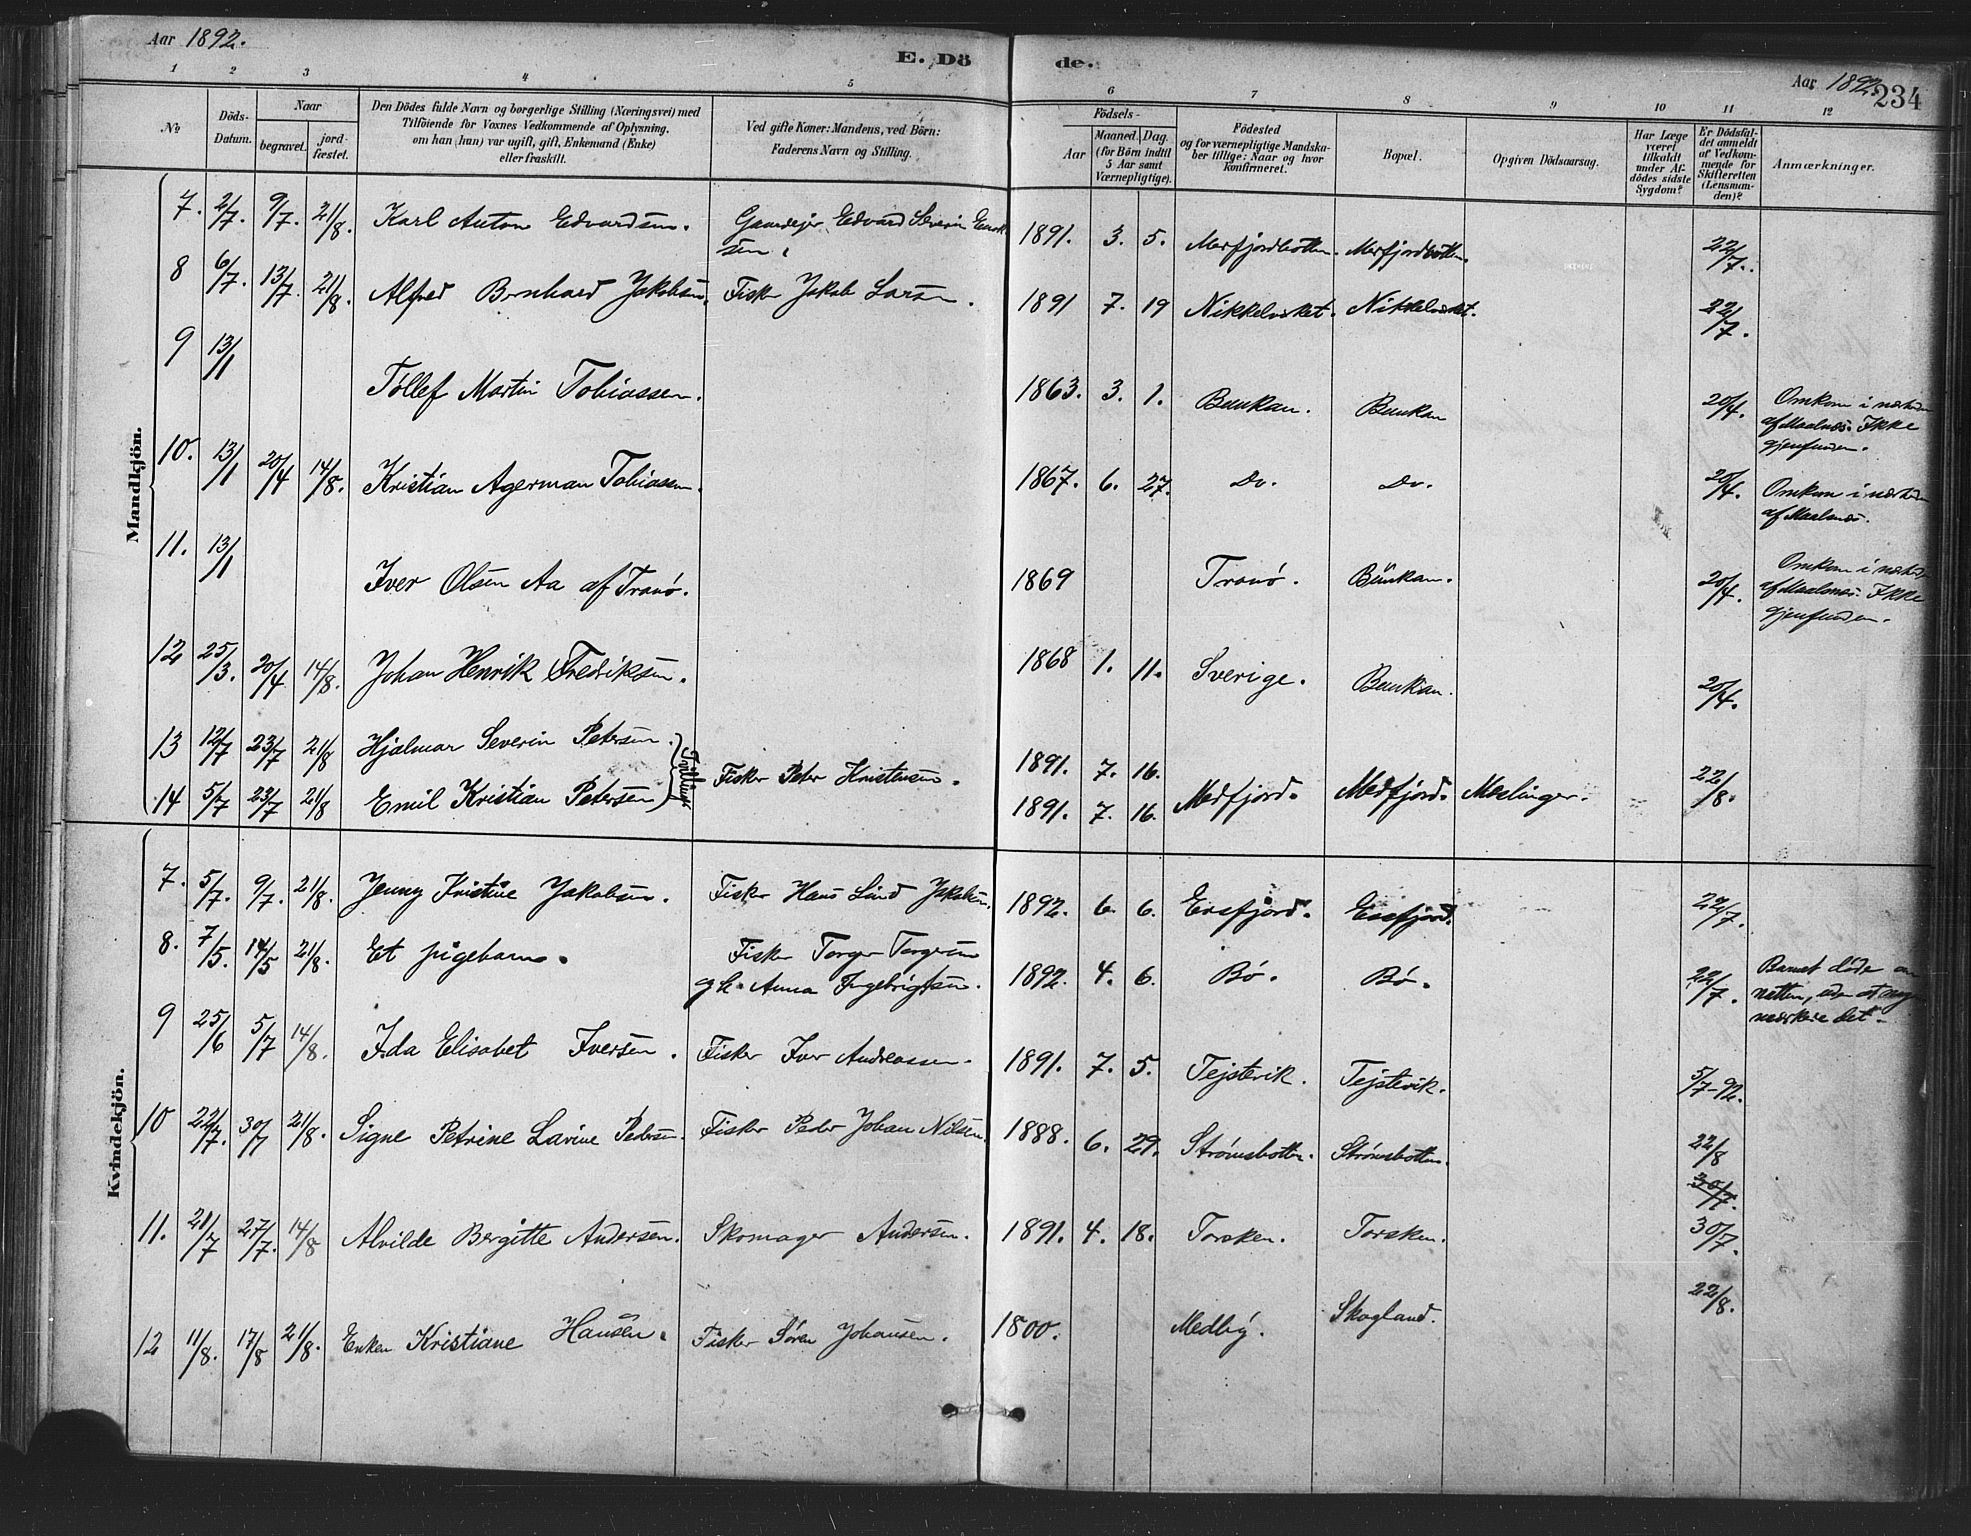 Aar 1892.
E. Dö de.
Aar 1892.
234
1 2 3 4 5 6 7 8 9 10 11 12
No
Döds-Datum.
Naar
begravet.
jord-fæstet.
Den Dödes fulde Navn og borgerlige Stilling (Næringsvei) med
Tilföiende for Voxnes Vedkommende af Oplysning,
om han (hun) var ugift, gift, Enkemand (Enke)
eller fraskilt.
Ved gifte Koner: Mandens, ved Börn:
Faderens Navn og Stilling.
Födsels-
Aar
Maaned. Dag.
(for Börn indtil
5 Aar samt
Værnepligtige).
Födested
og for værnepligtige Mandska-
ber tillige: Naar og hvor
konfirmeret.
Bopæl.
Opgiven Dödsaarsag.
Har Læge
været
tilkaldt
under Af-
dödes sidste
Sygdom?
Er Dödsfal-
det anmeldt
af Vedkom-
mende for
Skifteretten
(Lensman-
den)?
Anmærkninger.
Mandkjön.
7. 2/7. 9/7. 21/8. Karl Anton Edvardsen. Gaardejer Edvard Severin
sen. 1891. 3. 5. Mefjordbotten. Mefjordbotten. 22/7.
8 6/7. 13/7 21/8. Alfred Bernhard Jakobsen. Fisker Jakob Larsen. 1891 7. 19 Nikkelviket. Nikkelviket. 22/7.
9 13/1 Tollef Martin Tobiassen. 1863. 3. 1. Bunkan. Bunkan 20/4. Omkom i nærheden
af Maalnes. Ikke
gjenfunden.
10. 13/1 20/4 14/8. Kristian Agerman Tobiassen. 1867. 6. 27. Do. Do. 20/4. Omkom i nærheden
af Maalnes.
11. 13/1 Iver Olsen Aa af Tranø. 1869 Tranø. Bunkan. 20/4. Omkom i nærheden
af Maalnes. Ikke
gjenfunden.
12 25/3. 20/4 14/8. Johan Henrik Fredriksen. 1868 1. 11. Sverige. Bunkan. 20/4.
13 12/7 23/7 21/8 Hjalmar Severin Petersen. 1891. 7. 16.
Tvillinger Fisker Peter Kristensen. Medfjord. Medfjord. Meslinger. 22/8.
14 5/7 23/7 21/8 Emil Kristian Petersen 1891. 7. 16.
Kvindekjön.
7. 5/7. 9/7. 21/8. Jenny Kristine Jakobsen. Fisker Hans Lind Jakobsen. 1892. 6. 6. Ersfjord. Ersfjord. 22/7.
8. 7/5. 14/5 21/8. Et pigebarn. Fisker Torger Torgersen
gh. Anna Ingebrigtsen. 1892. 4. 6. Bø. Bø. 22/7. Barnet døde om
natten, uden at nogen
mærkede det.
9 25/6 5/7 14/8. Ida Elisabet Iversen. Fisker Iver Andreassen. 1891. 7. 5. Tejstevik. Tejstevik. 5/7-92.
10 22/7. 30/7 21/8. Signe Petrine Lavine Pedersen. Fisker Peder Johan Nilsen. 1888. 6. 29. Strømsbotten. Strømsbotten. 22/8
30/7.
11. 21/7 27/7. 14/8 Alvilde Bergitte Andersen. Skomager Andersen. 1891. 4. 18. Torsken. Torsken. 30/7.
12 11/8. 17/8 21/8. Enken Kristiane Hansen. Fisker Søren Johansen. 1800. Medby. Skogland. 22/8.